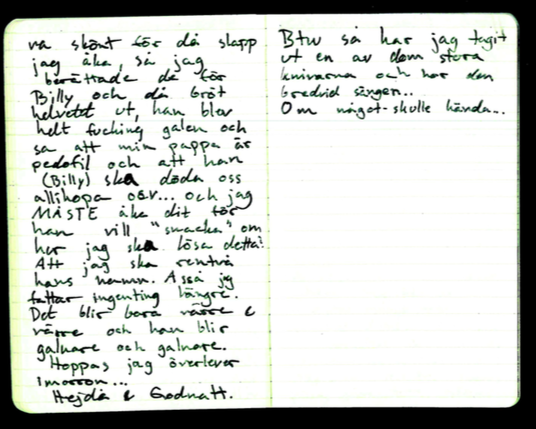 va skönt för då slapp
jag åka, så jag
berättade de för
Billy och då bröt
helvetet ut, han blev
helt fucking galen och
sa att min pappa är
pedofil och att han
(Billy) ska döda oss
allihopa osv... och jag
MÅSTE åka dit för
han vill "snacka" om
hur jag ska lösa detta?
Att jag ska rentvå
hans namn. Asså jag
fattar ingenting längre.
Det blir bara värre &
värre och han blir
galnare och galnare.
Hoppas jag överlever
imorron...
Hejdå & Godnatt.
Btw så har jag tagit
ut en av dom stora
knivarna och har den
bredvid sängen...
Om något skulle hända...